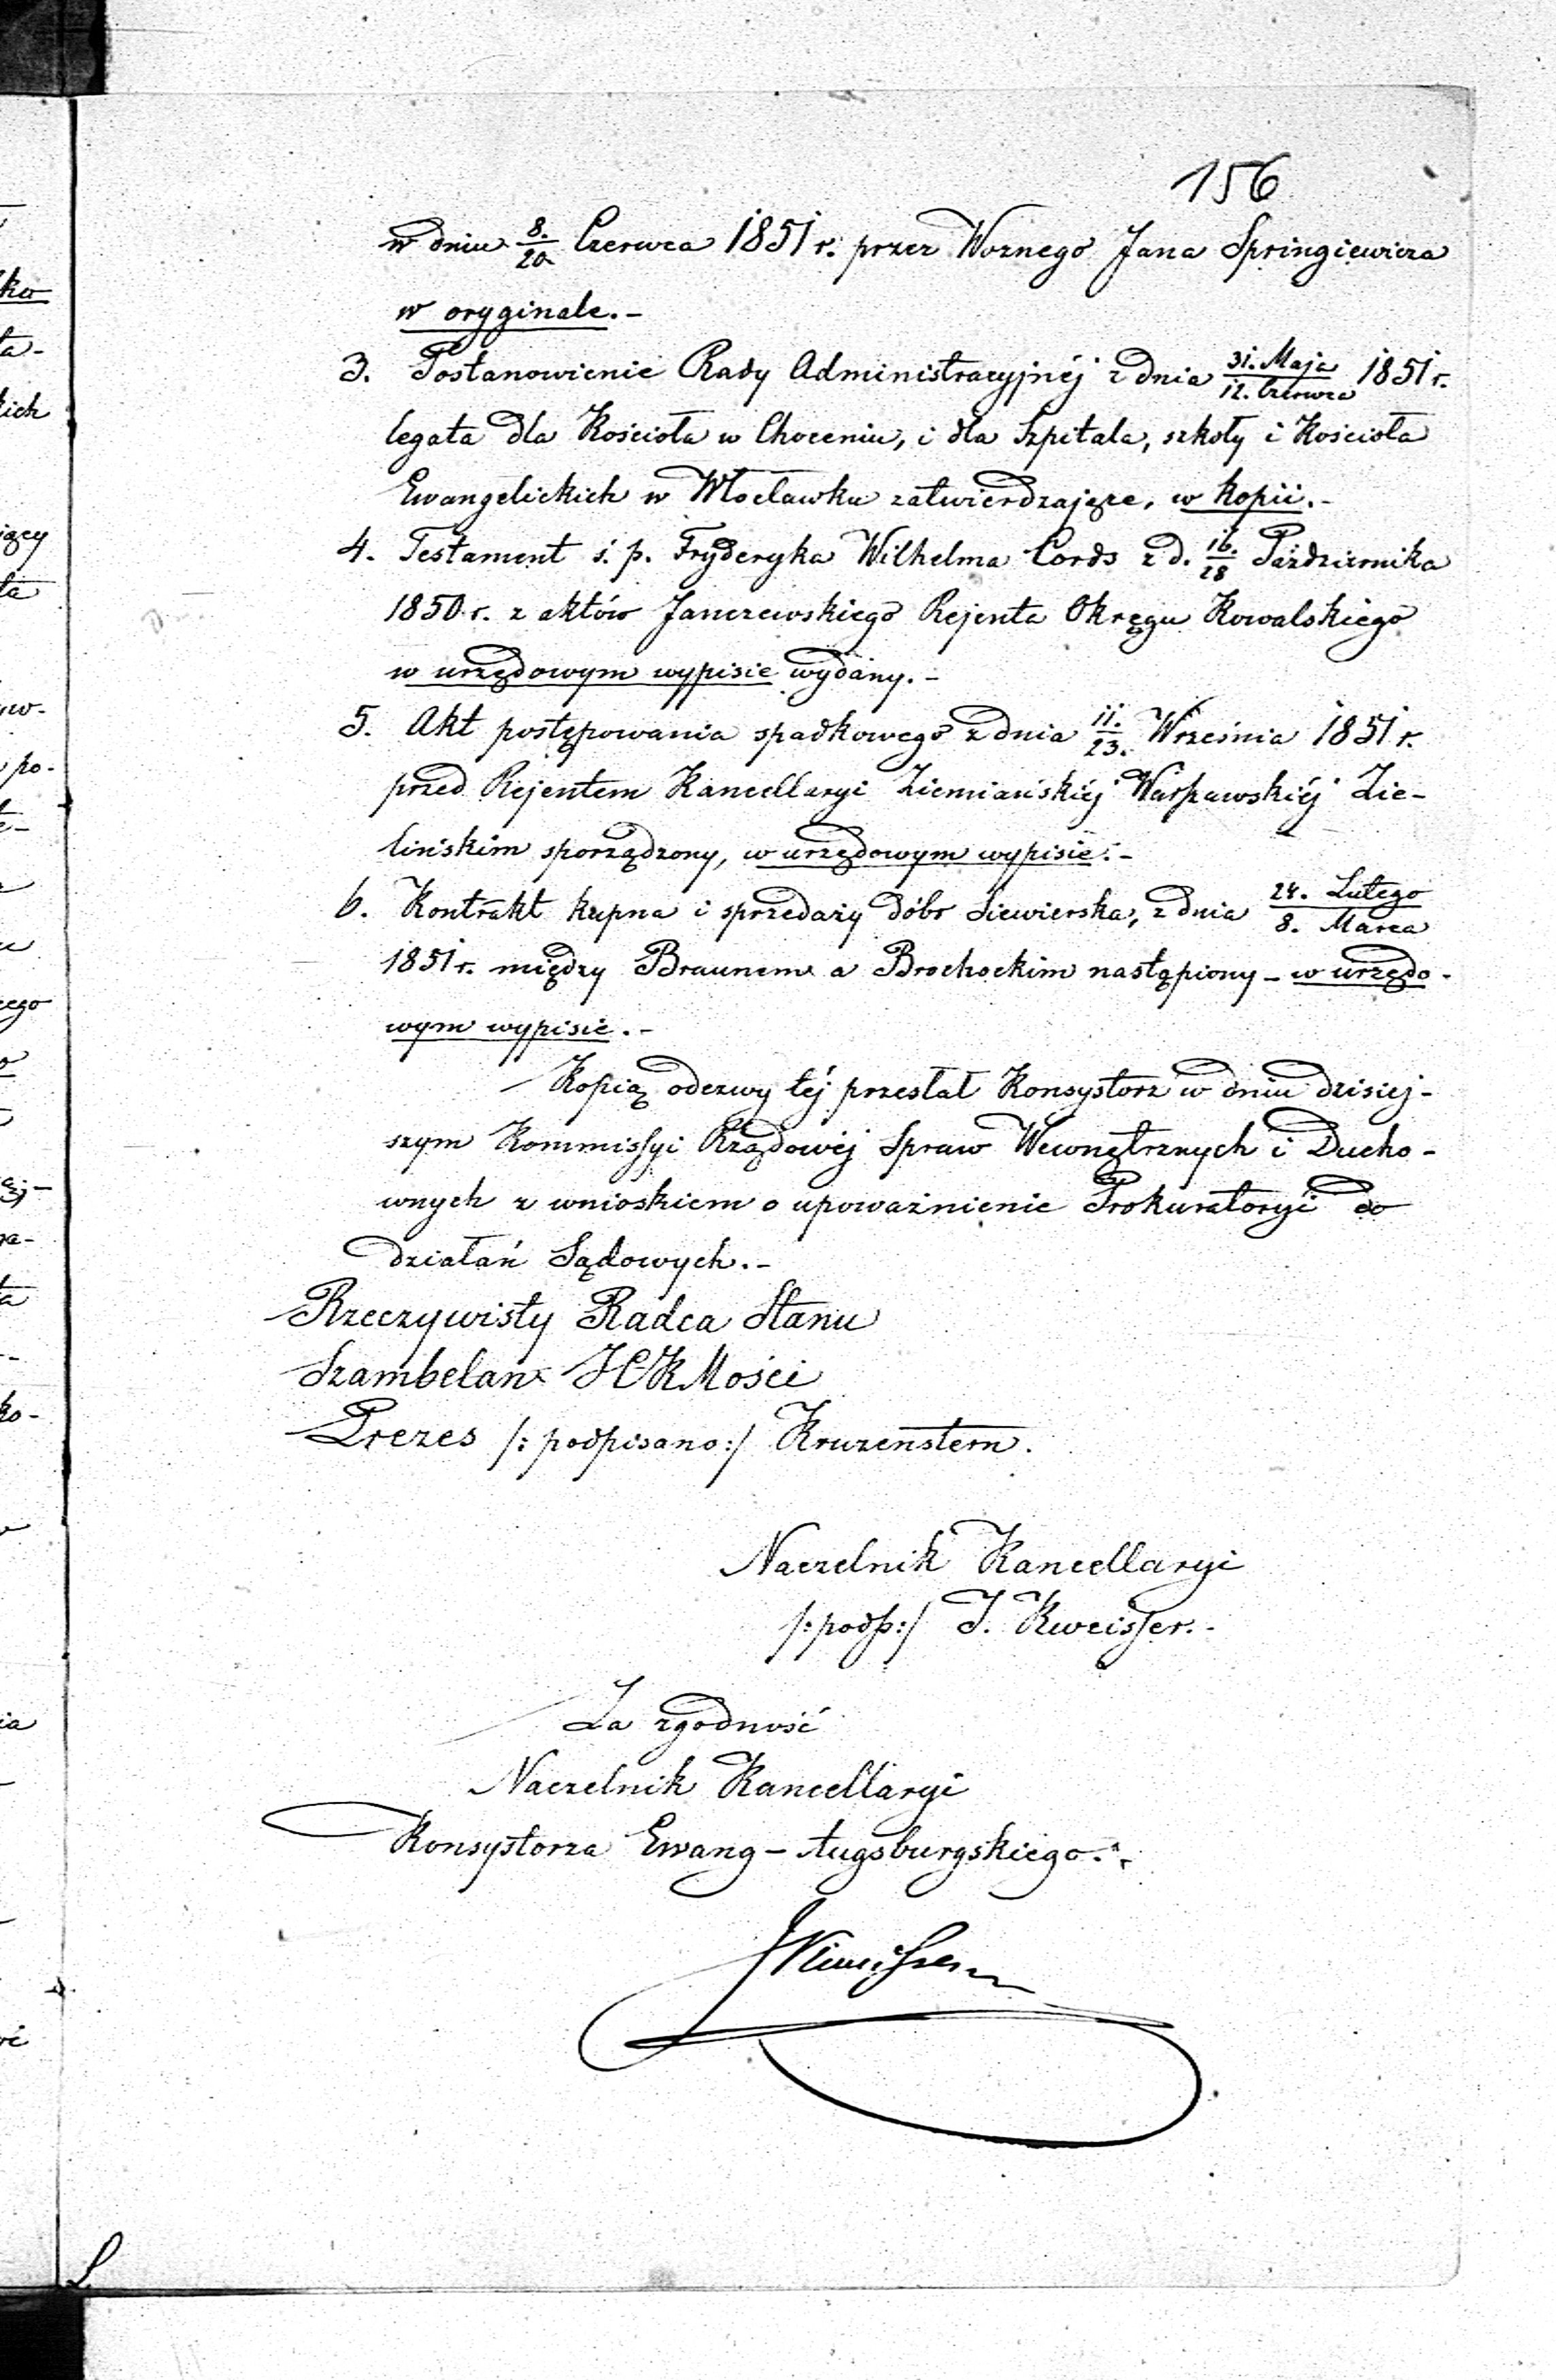 156
w dniu 8./20 Czerwca 1851 r. przez Woznego Jana Springiewicza
w oryginale.-
3. Postanowienie Rady Administracyjnéj z dnia 31. Maja/12. Czerwca 1851 r.
legata dla Kościoła w Choceniu, i dla Szpitala, szkoły i Kościoła
Ewangelickich w Włocławku zatwierdzające, w kopii.-
4. Testament ś. p. Fryderyka Wilhelma Cords z d. 16./28 Października
1850 r. z aktów Janczewskiego Rejenta Okręgu Kowalskiego
w urzędowym wypisie wydany.-
5. Akt postępowania spadkowego z dnia 11./23. Września 1851 r.
przed Rejentem Kancellaryi Ziemiańskiéj Warszawskiéj Zie-
lińskim sporządzony, w urzędowym wypisie.-
6. Kontrakt kupna i sprzedaży dóbr Siewierska, z dnia 24. Lutego/8. Marca
1851 r. między Braunem a Brochockim nastąpiony - w urzędo-
wym wypisie.-
Kopią odezwy téj przesłał Konsystorz w dniu dzisiej-
szym Kommissyi Rządowéj Spraw Wewnętrznych i Ducho-
wnych z wnioskiem o upoważnienie Prokuratoryi do
działań Sądowych.-
Rzeczywisty Radca Stanu
Szambelan JCKMości
Prezes /: podpisano :/ Kruzenstern.
Naczelnik Kancellaryi
/: podp :/ J. Kweisser.-
Za zgodność
Naczelnik Kancellaryi
Konsystorza Ewang-Augsburgskiego.